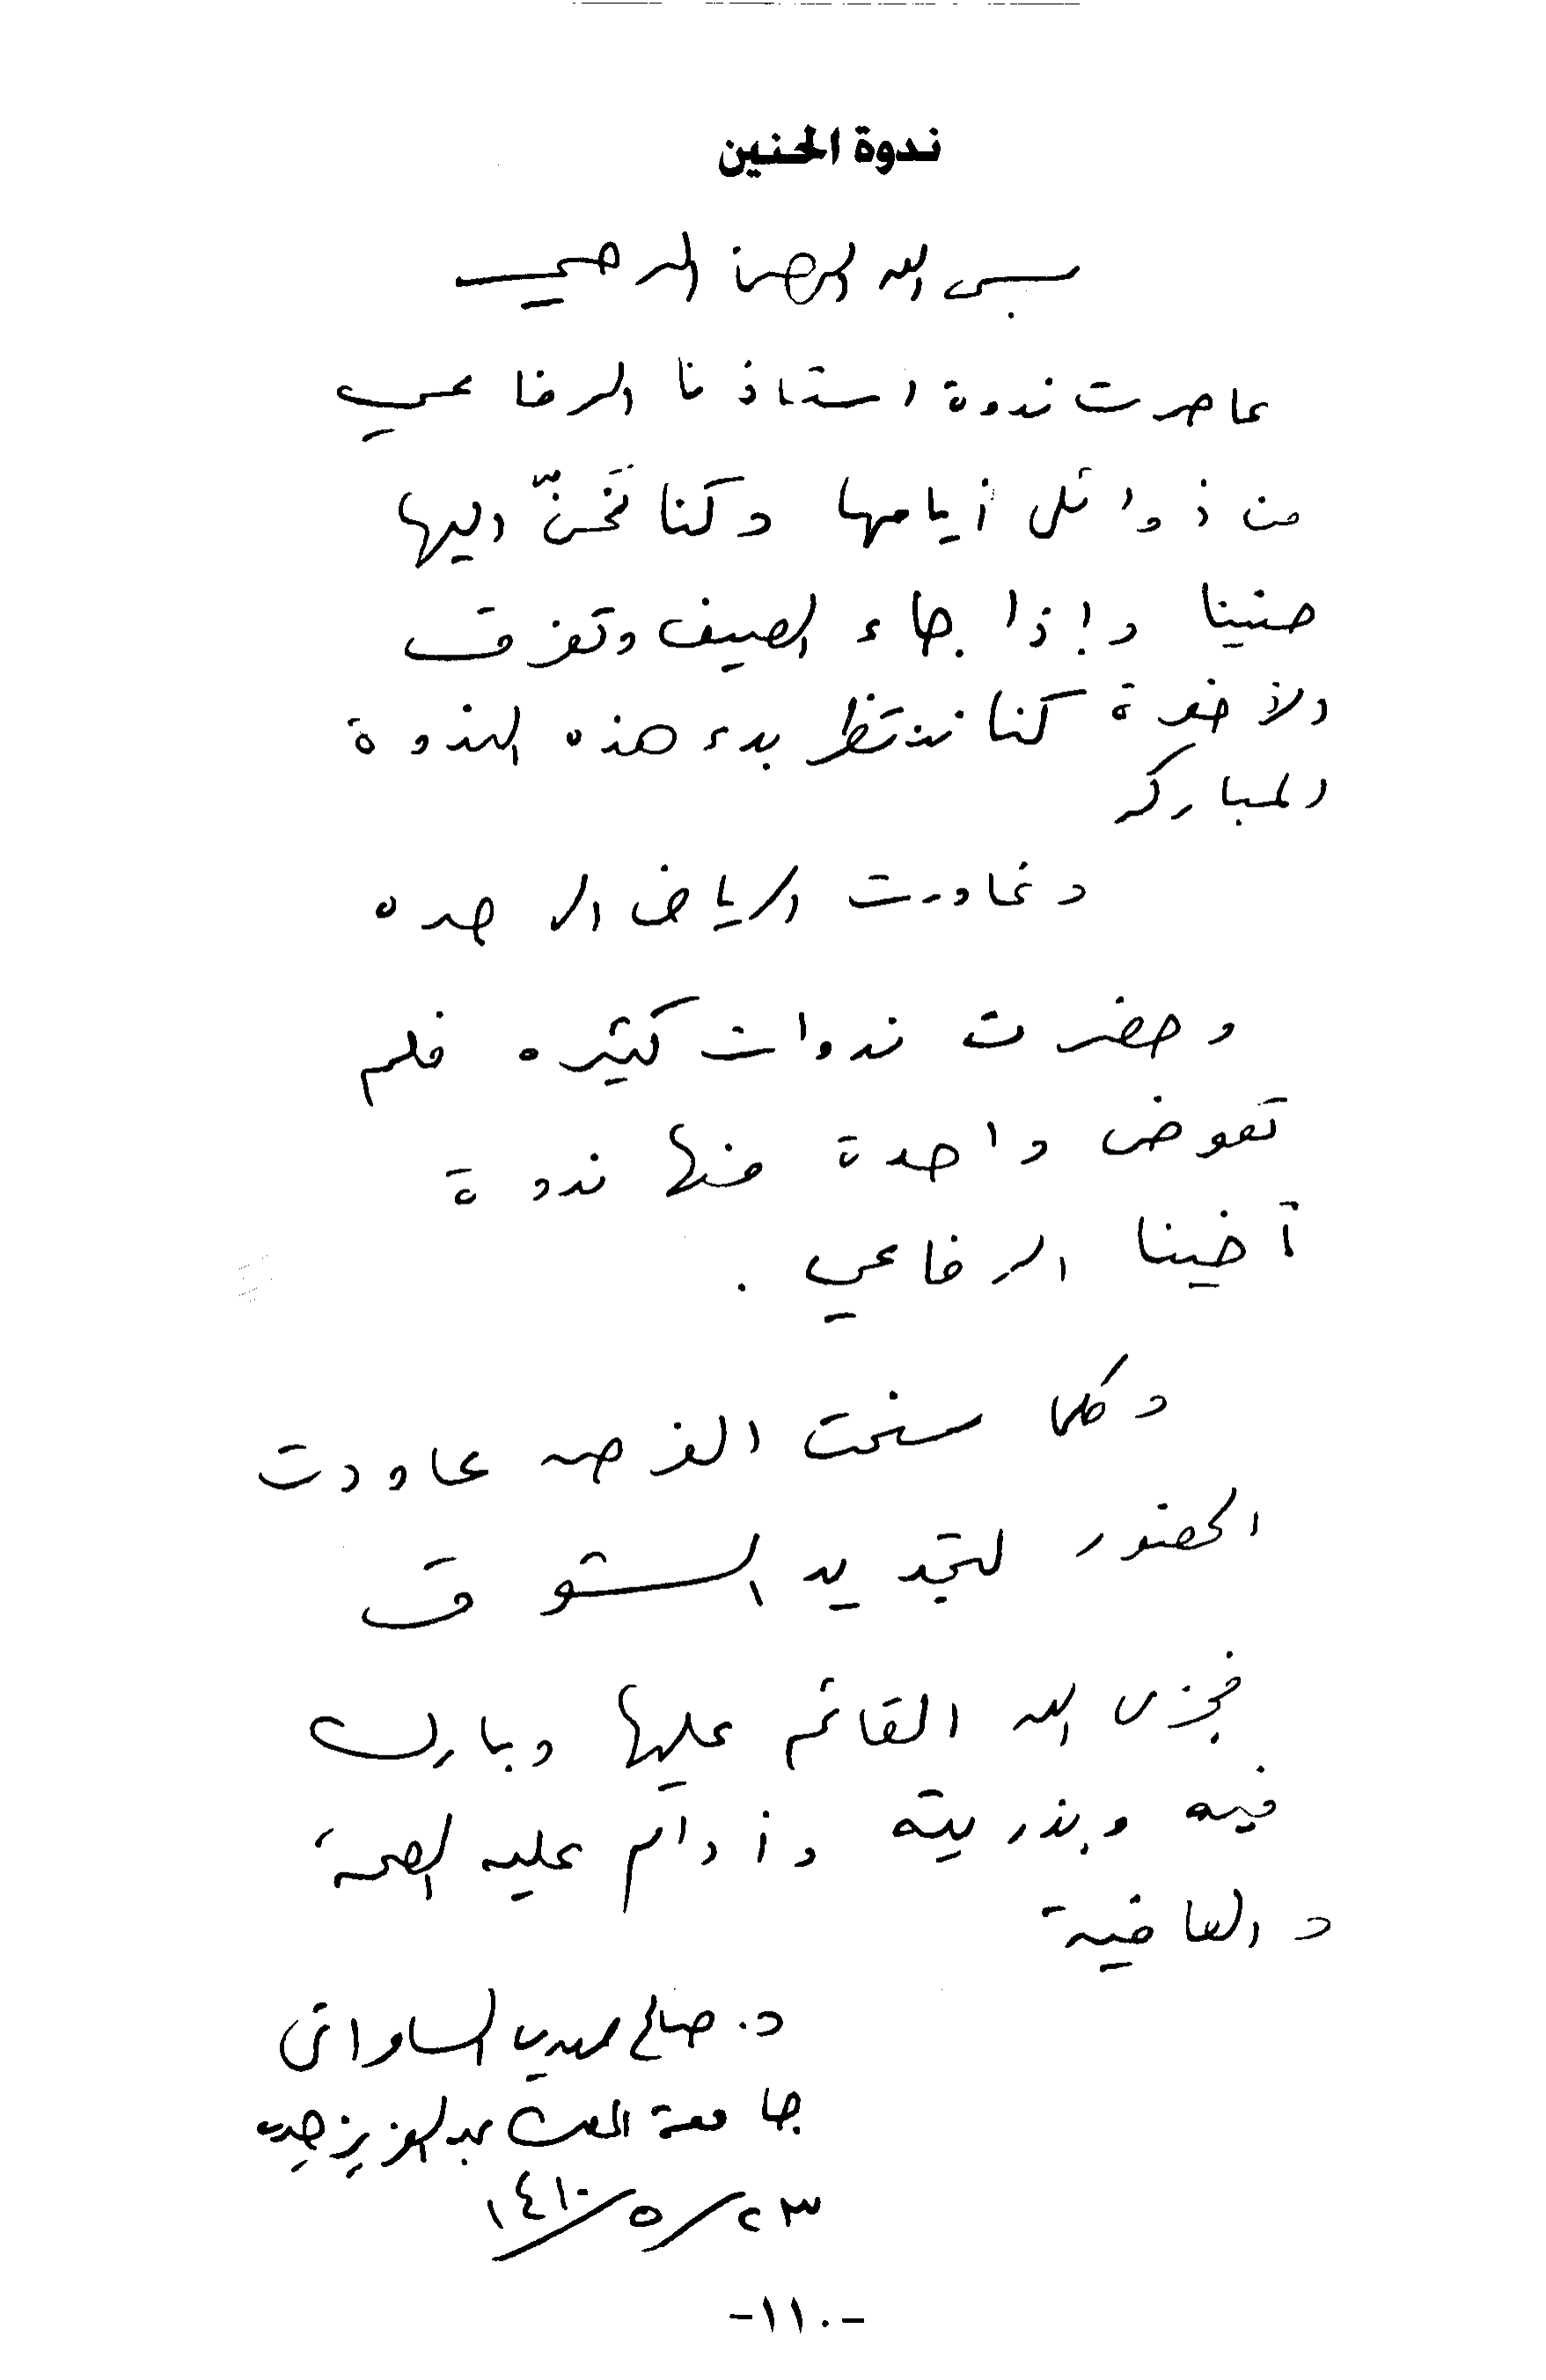 ندوة الحنين
بسم الله الرحمن الرحيم
عاصرت ندوة استاذنا الرفاعي
من أوائل أيامها وكنا نَحنّ اليها
حنينا وإذا جاء الصيف وتفرق
الأخوة كنا ننتظر بدء هذه الندوة
المباركه
وغادرت الرياض الى جده
وحضرت ندوات كثيره فلم
تعوض واحدة منها ندوة
أخينا الرفاعي .
وكلما سنحت الفرصه عاودت
الحضور لتجديد الشوق
فجزى الله القائم عليها وبارك
فيه وبذريته وأدام عليه الصحة
والعافية
د. صالح مهدي السامرائي
جامعة الملك عبدالعزيز جده
٢٣/٥/١٤١٠
-١١٠-